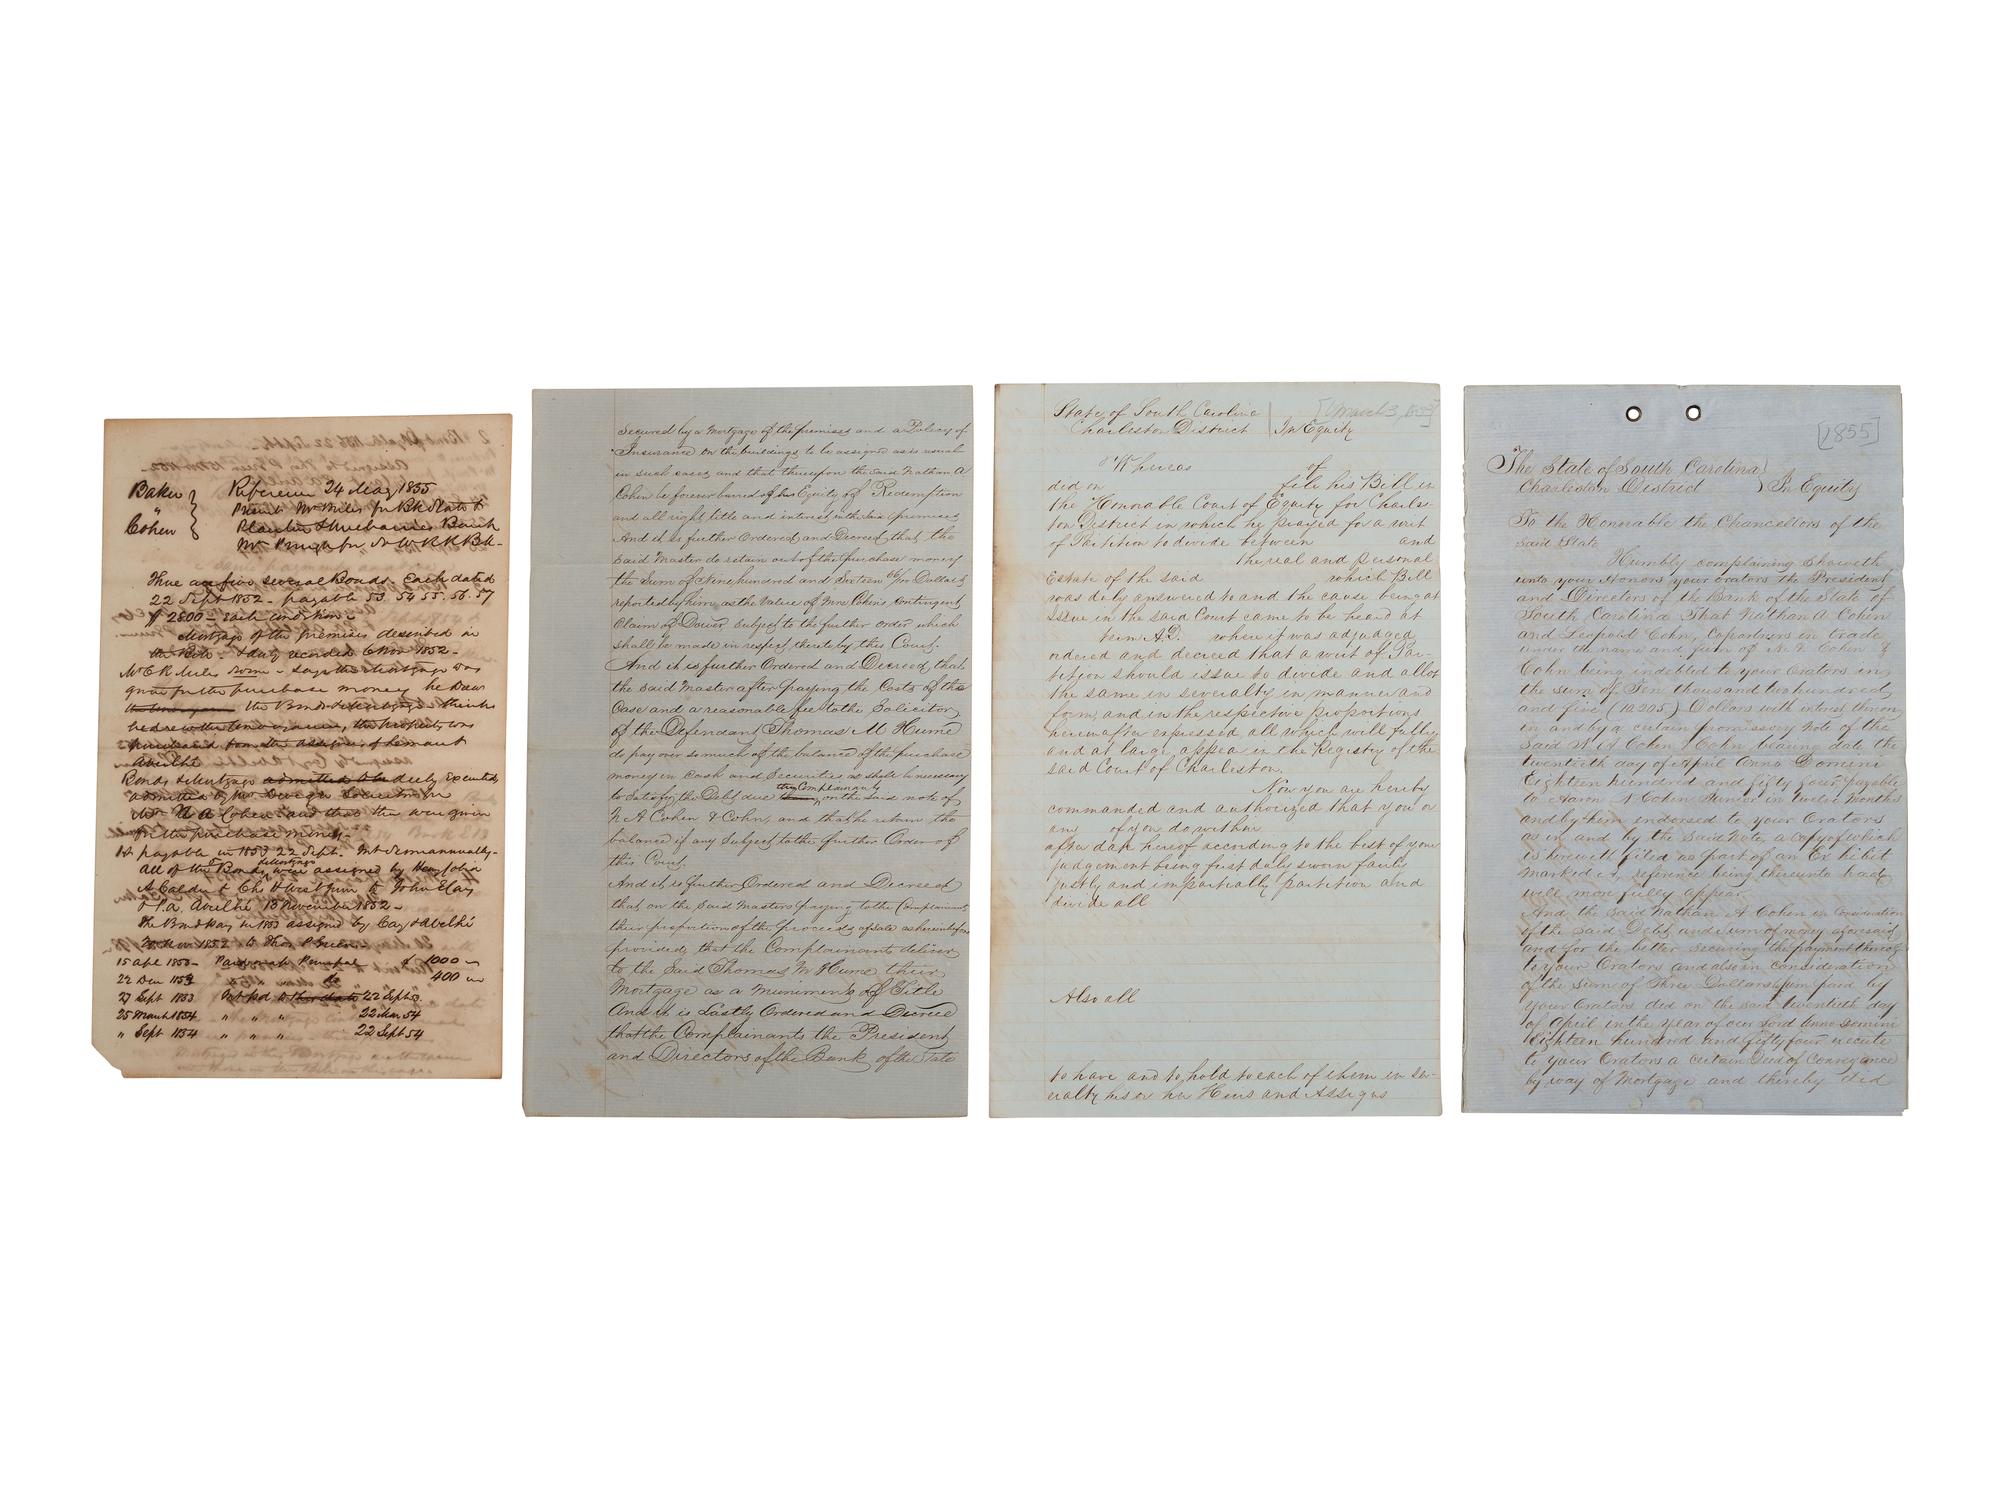 Baker
"
Cohen
Reference 24 May 1855
Present Mr Miles for Bk State &
Planters & Mechanics Bank
Mr for S W R R Bk -
There are five several Bonds. Each dated
22 Sept 1852 - payable 53. 54. 55. 56. 57
$ 2800 - each condition -
Mortgage of the premises described in
the Bill - & duly recorded 6 Nov 1852 -
Mr C R Miles sworn - says the Mortgage was
given for the purchase money he drew
the Bond & Mortgage thinks
he drew the conveyance, the property was
purchased from the assignees of
Bonds & Mortgage admitted to be duly executed
admitted by Mr Solicitor for
Mr N A Cohen and that they were given
for the purchase money -
1st payable in 1853 22 Sept. Int Semiannually -
All of the Bonds & Mortgage were assigned by
A Calder & to John
13 November 1852 -
The Bond pay in 1853 assigned by
Nov 1852 to Thos P Green
15 Apl 1853 - Paid on a/c Principal $ 1000 -
22 Dec 1853 do 400 -
27 Sept 1853 Int pd to this date 22 Sept 53.
25 March 1854 " " " 22 Mar 54
" Sept 1854 " " " " 22 Sept 54
Secured by a Mortgage of the premises and a Policy of
Insurance on the buildings to be assigned as is usual
in such cases and that thereupon the said Nathan A
Cohen be forever barred of his Equity of Redemption
and all right title and interest in the said premises
And it is further Ordered and Decreed that the
said Master do retain out of the purchase money
the Sum of Nine hundred and Sixteen Dollars
reported by him, as the Value of Mrs Cohens contingent
Claim of Dower subject to the further order which
shall be made in respect thereto by this Court.
And it is further Ordered and Decreed, that
the said Master after paying the Costs of this
Case and a reasonable fee to the Solicitor
of the Defendant Thomas M Hume
do pay over so much of the balance of the purchase
money in Cash and Securities as shall be necessary
to satisfy the Debt due the Complainants on the said note of
N A Cohen & Cohn, and that he retain the
balance if any Subject to the further Order of
this Court
And it is further Ordered and Decreed
that on the said Masters paying to the Complainants
their proportion of the proceeds of sale as hereinbefore
provided, that the Complainants deliver
to the Said Thomas M Hume their
Mortgage as a Muniment of Title
And it is Lastly Ordered and Decreed
that the Complainants the President
and Directors of the Bank of the State
State of South Carolina
Charleston District
In Equity
[March 3, 1853]
Whereas of
did on file his Bill in
the Honorable Court of Equity for Charles-
ton District in which he prayed for a writ
of Partition to divide between and
the real and personal
Estate of the said which Bill
was duly answered to and the cause being at
Issue in the said Court came to be heard at
term A.D. when it was adjudged
ordered and decreed that a writ of Par-
tition should issue to divide and allot
the same in severalty in manner and
form, and in the respective proportions
hereinafter expressed all which will fully
and at large appear in the Registry of the
said Court of Charleston.
Now you are hereby
commanded and authorized that you or
any of you do within
after date hereof according to the best of your
judgement being first duly sworn fairly
justly and impartially partition and
divide all
Also all
to have and to hold to each of them in sev-
eralty his or her Heirs and Assigns
[1855]
The State of South Carolina
Charleston District
In Equity
To the Honorable the Chancellors of the
said State
Humbly complaining Sheweth
unto your Honors your Orators the President
and Directors of the Bank of the State of
South Carolina That Nathan A Cohen
and Leopold Cohn, Copartners in trade
under the name and firm of N. A Cohen &
Cohn being indebted to your Orators in
the sum of Ten thousand two hundred
and five (10.205) Dollars with interest thereon
in and by a certain promissory Note of the
Said N A Cohen & Cohn bearing date the
twentieth day of April Anno Domini
Eighteen hundred and fifty four payable
to Aaron N Cohen Junior in twelve months
and by them endorsed to your Orators
as in and by the said Note, a copy of which
is herewith filed as part of an Exhibit
marked A, reference being thereunto had
will more fully appear.
And the said Nathan A Cohen in consideration
of the said Debt and sum of money aforesaid
and for the better securing the payment thereof
to your Orators and also in consideration
of the sum of Three Dollars him paid by
your Orators did on the said twentieth day
of April in the year of our Lord Anno Domini
Eighteen hundred and fifty four execute
to your Orators a certain Deed of Conveyance
by way of Mortgage and thereby did